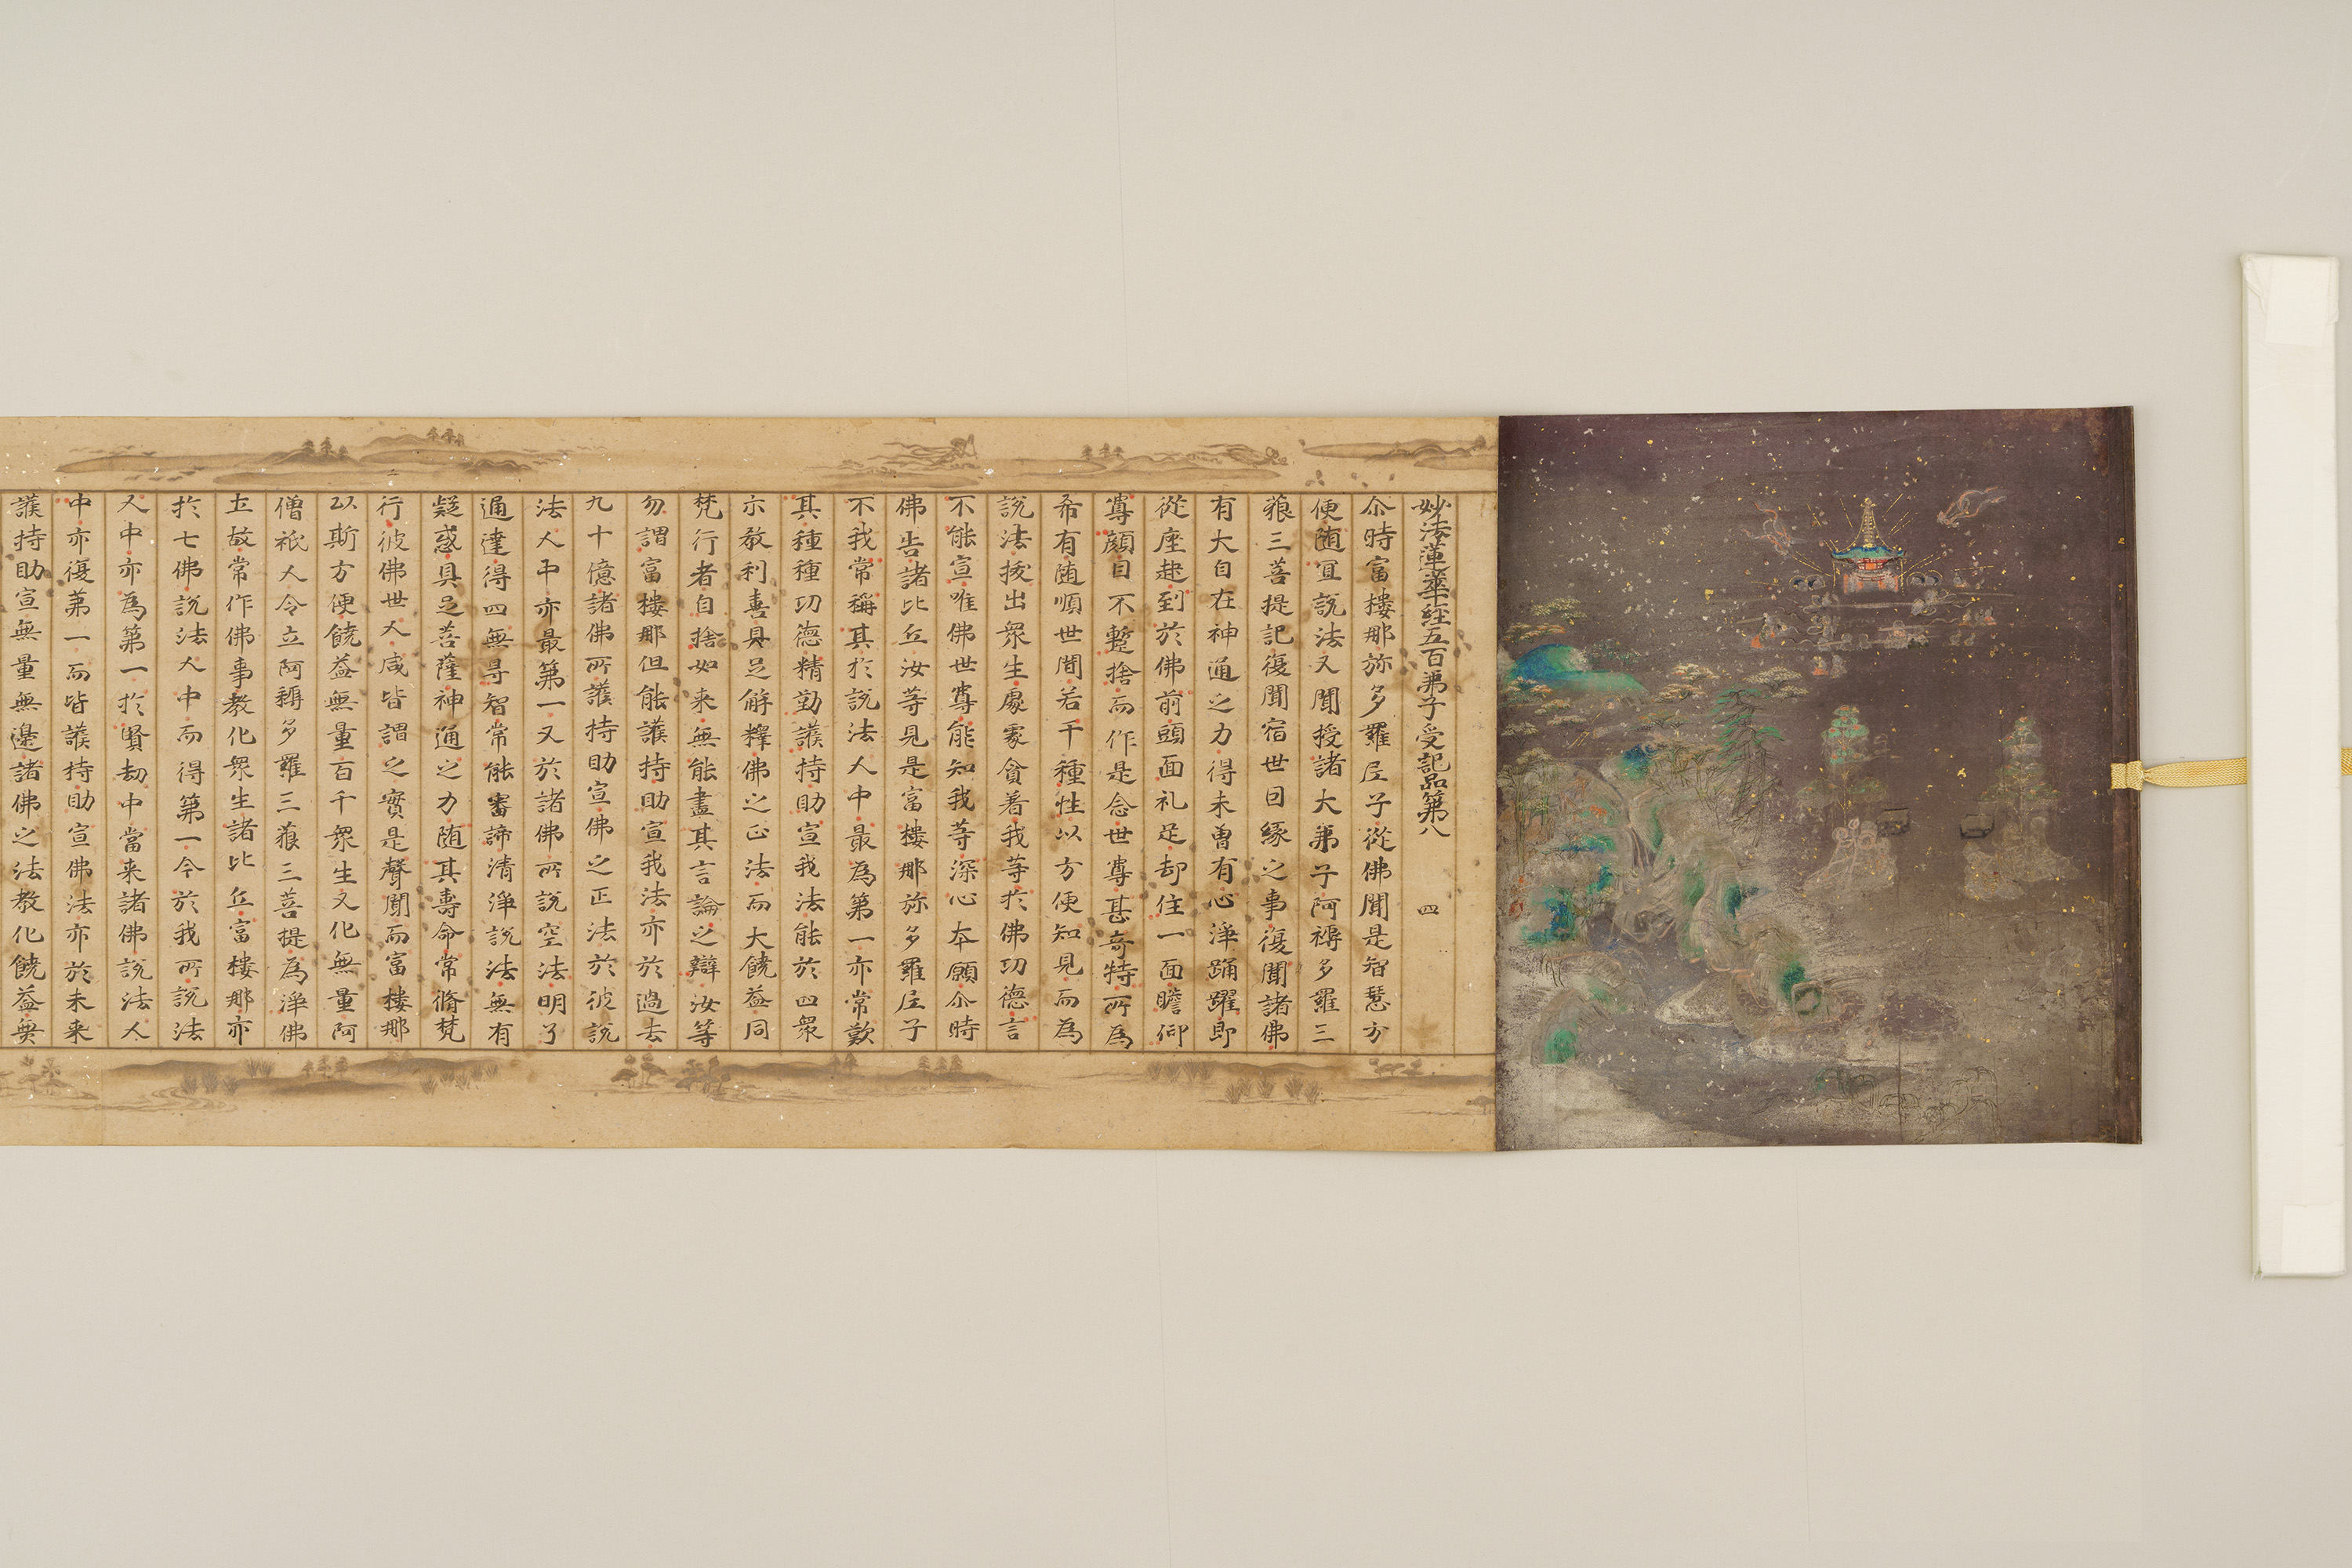 妙法蓮華経五百弟子受記品第八 四
尒時富樓那弥多羅尼子從佛聞是智慧方
便随冝說法又聞授諸大弟子阿耨多羅三
藐三菩提記復聞宿世因緣之事復聞諸佛
有大自在神通之力得未曽有心淨踊躍即
從座起到於佛前頭面礼足却住一面瞻仰
尊顔目不暫捨而作是念世尊甚奇特所為
希有随順世間若干種性以方便知見而為
說法拔出衆生處處貪着我等於佛功德言
不能宣唯佛世尊能知我等深心本願尒時
佛告諸比丘汝等見是富樓那弥多羅尼子
不我常稱其於說法人中最為第一亦常歎
其種種功德精勤護持助宣我法能於四衆
示教利喜具足解釋佛之正法而大饒益同
梵行者自捨如来無能盡其言論之辯汝等
勿謂富樓那但能護持助宣我法亦於過去
九十億諸佛所護持助宣佛之正法於彼說
法人中亦最第一又於諸佛所說空法明了
通達得四無㝵智常能審諦清淨說法無有
疑惑具足菩薩神通之力随其壽命常脩梵
行彼佛世人咸皆謂之實是聲聞而富樓那
以斯方便饒益無量百千衆生又化無量阿
僧祇人令立阿耨多羅三藐三菩提為淨佛
土故常作佛事教化衆生諸比丘富樓那亦
於七佛說法人中而得第一今於我所說法
人中亦為第一於賢劫中當来諸佛說法人
中亦復第一而皆護持助宣佛法亦於未来
護持助宣無量無邊諸佛之法教化饒益無